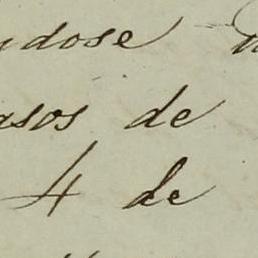 ydose
asos de
4 de